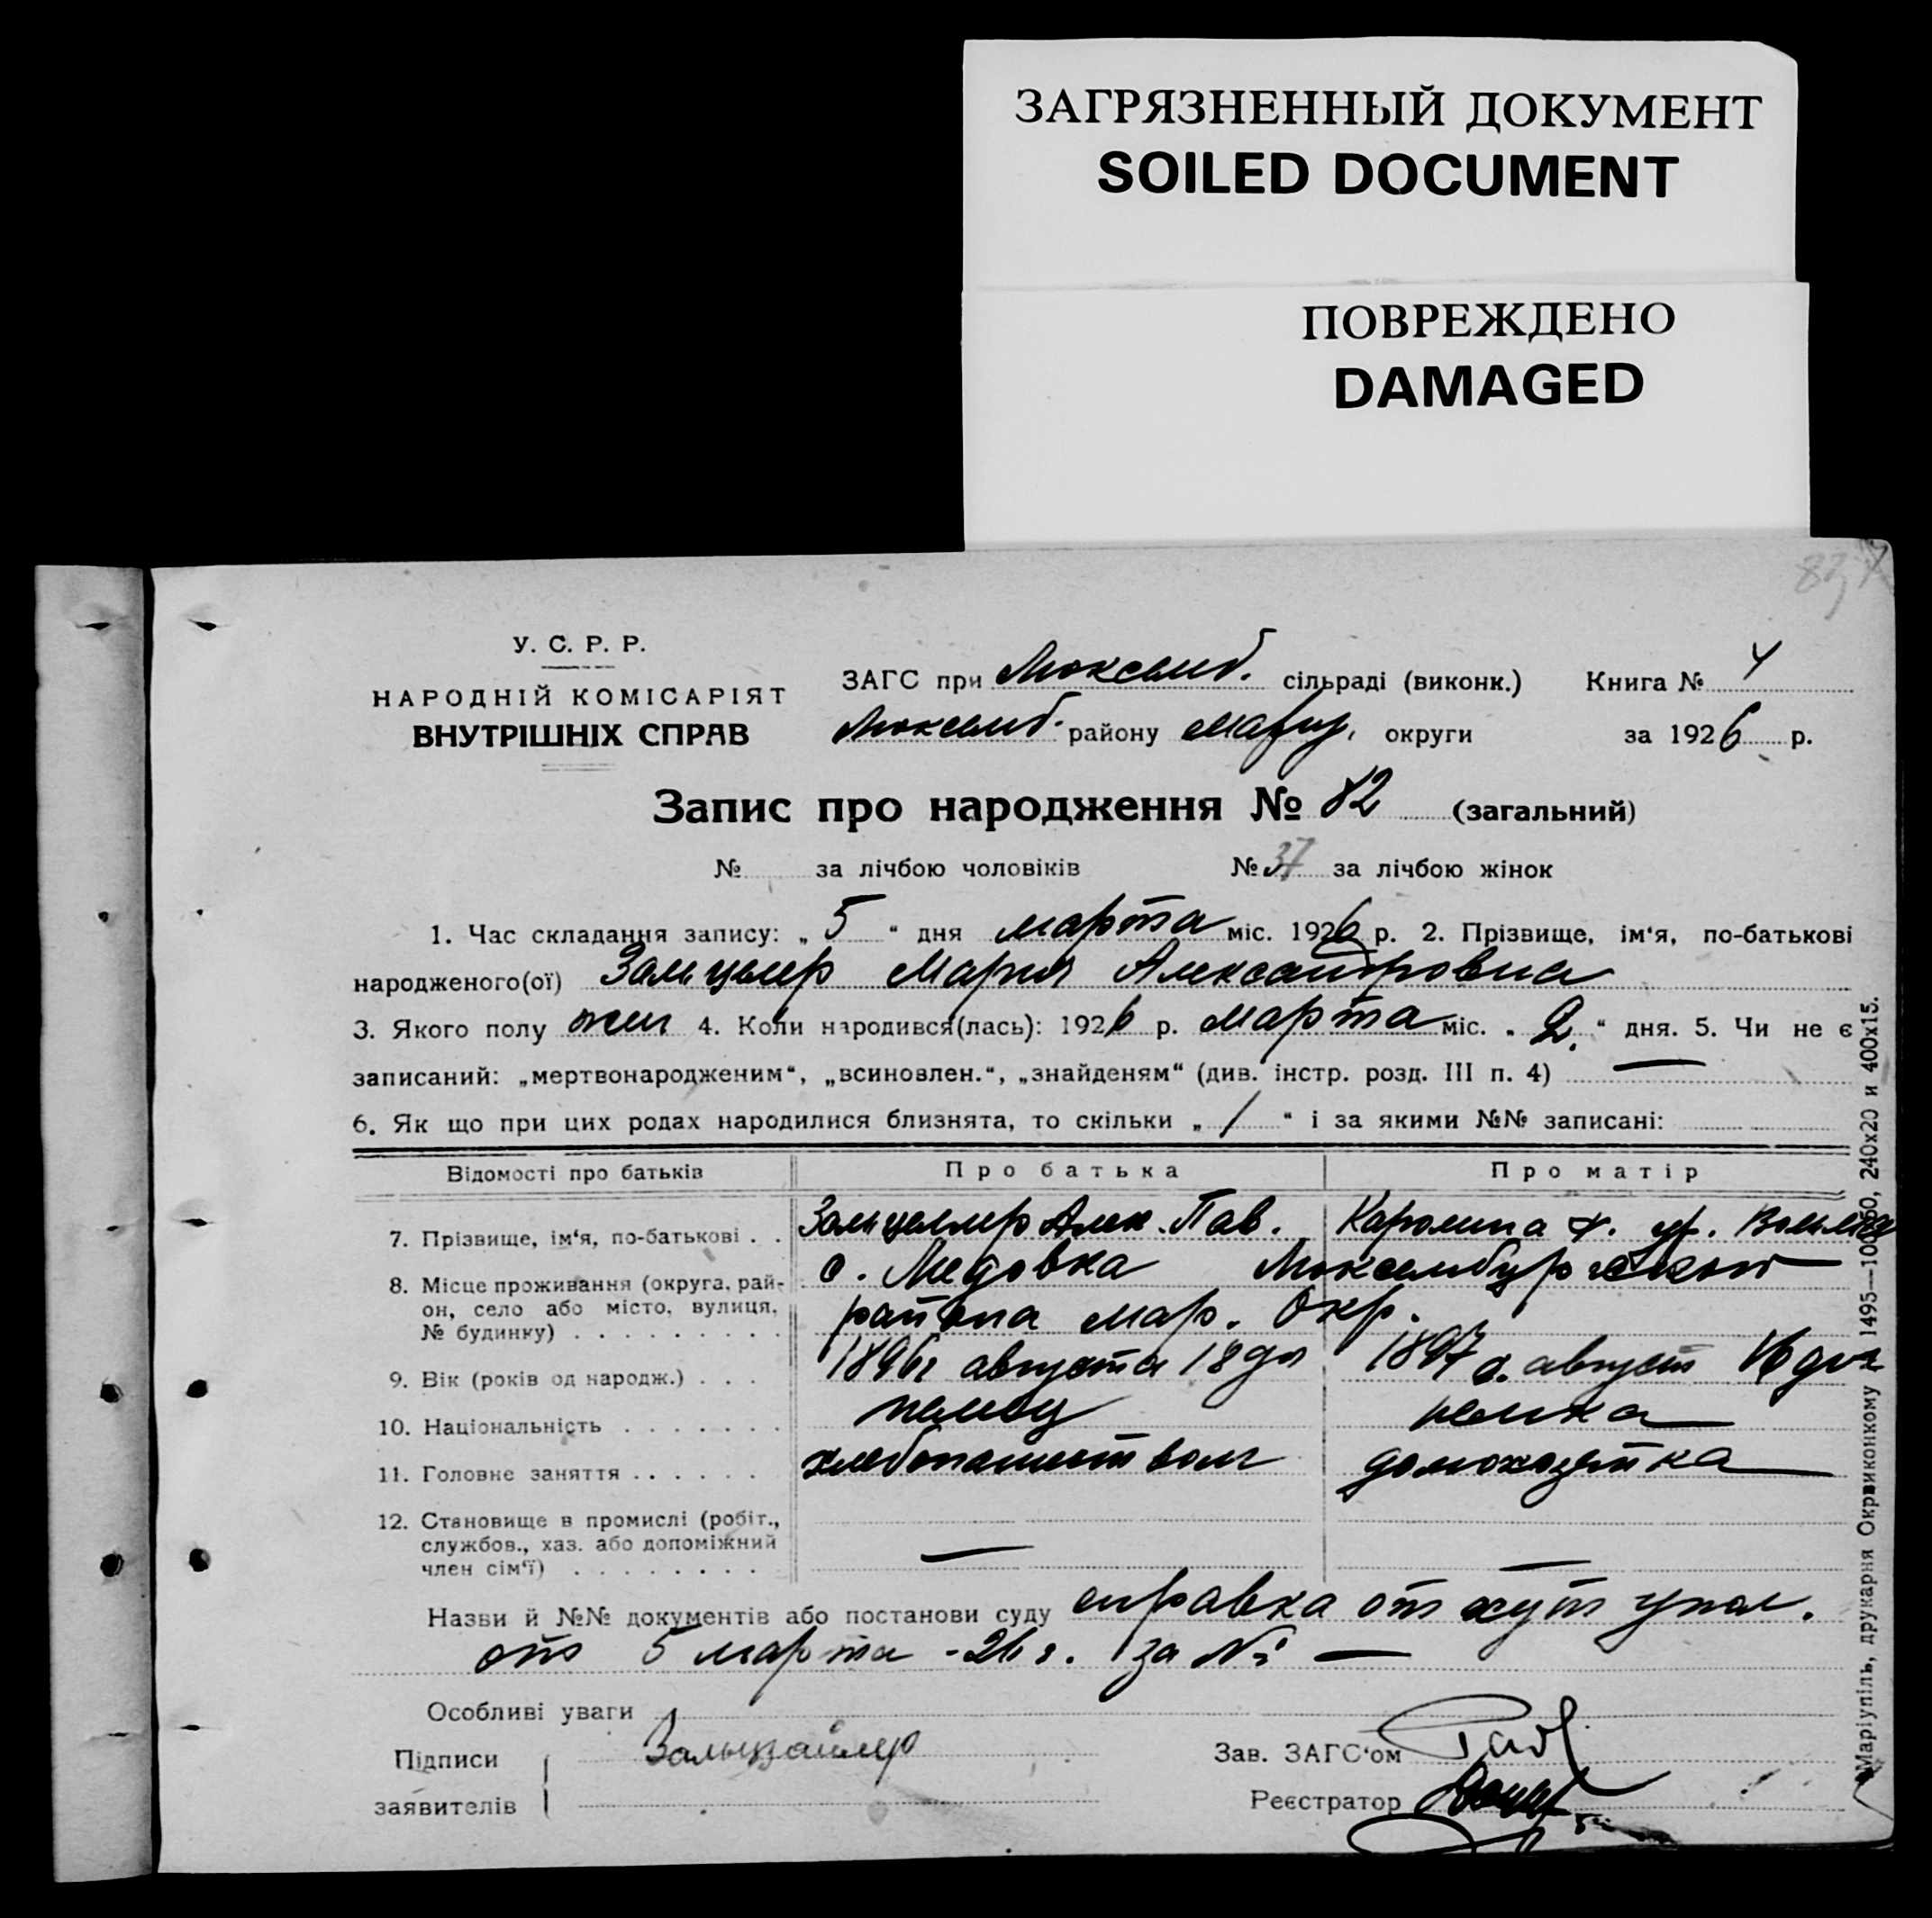 ЗАГРЯЗНЕННЫЙ ДОКУМЕНТ
SOILED DOCUMENT
ПОВРЕЖДЕНО
DAMAGED
У. С. Р. Р.
НАРОДНІЙ КОМІСАРІЯТ
ВНУТРІШНІХ СПРАВ
ЗАГС при Люксемб. сільраді (виконк.) Книга №
Люксемб. району Мариу. округи за 1926 р.
Запис про народження № 82 (загальний)
№ за лічбою чоловіків № 37 за лічбою жінок
1. Час складання запису: „ 5 “ дня марта міс. 1926 р. 2. Прізвище, ім'я, по-батькові
народженого(ої) Зальцлер Мария Александровна
3. Якого полу жен 4. Коли народився(лась): 1926 р. марта міс. „ 2. “ дня. 5. Чи не є
записаний: „мертвонародженим“, „всиновлен.“, „знайденям“ (див. інстр. розд. III п. 4) —
6. Як що при цих родах народилися близнята, то скільки „ / “ і за якими №№ записані:
Відомості про батьків Про батька Про матір
7. Прізвище, ім'я, по-батькові . . Зальцеллер Алек. Пав. Каролина
8. Місце проживання (округа, рай-
он, село або місто, вулиця,
№ будинку) . . . . . . . . .
с. Медовка Люксембургской
района Мар. Окр.
9. Вік (років од народж.) . . . 1896г августа 18 дня 1897 г. август 16 дня
10. Національність . . . . . . . немец немка
11. Головне заняття . . . . . . хлебопашеством домохозяйка
12. Становище в промислі (робіт.,
службов., хаз. або допоміжний
член сім'ї) . . . . . . . . — —
Назви й №№ документів або постанови суду справка от хут упол.
от 5 марта - 26 г. за № —
Особливі уваги
Підписи Зальцзайлер Зав. ЗАГС'ом
заявителів Реєстратор
Маріупіль, друкарня Окрвиконкому № 1495—100х50, 240х20 и 400х15.